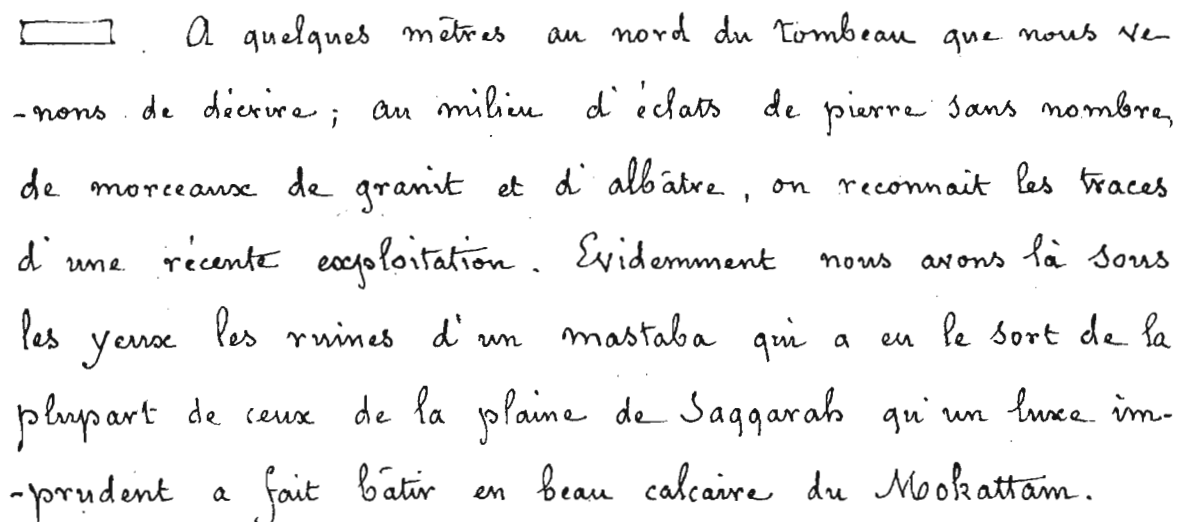 A quelques mètres au nord du tombeau que nous ve-
-nons de décrire; au milieu d'éclats de pierre sans nombre,
de morceaux de granit et d'albâtre, on reconnait les traces
d'une récente exploitation. Evidemment nous avons là sous
les yeux les ruines d'un mastaba qui a eu le sort de la
plupart de ceux de la plaine de Saqqarah qu'un luxe im-
-prudent a fait bâtir en beau calcaire du Mokattam.